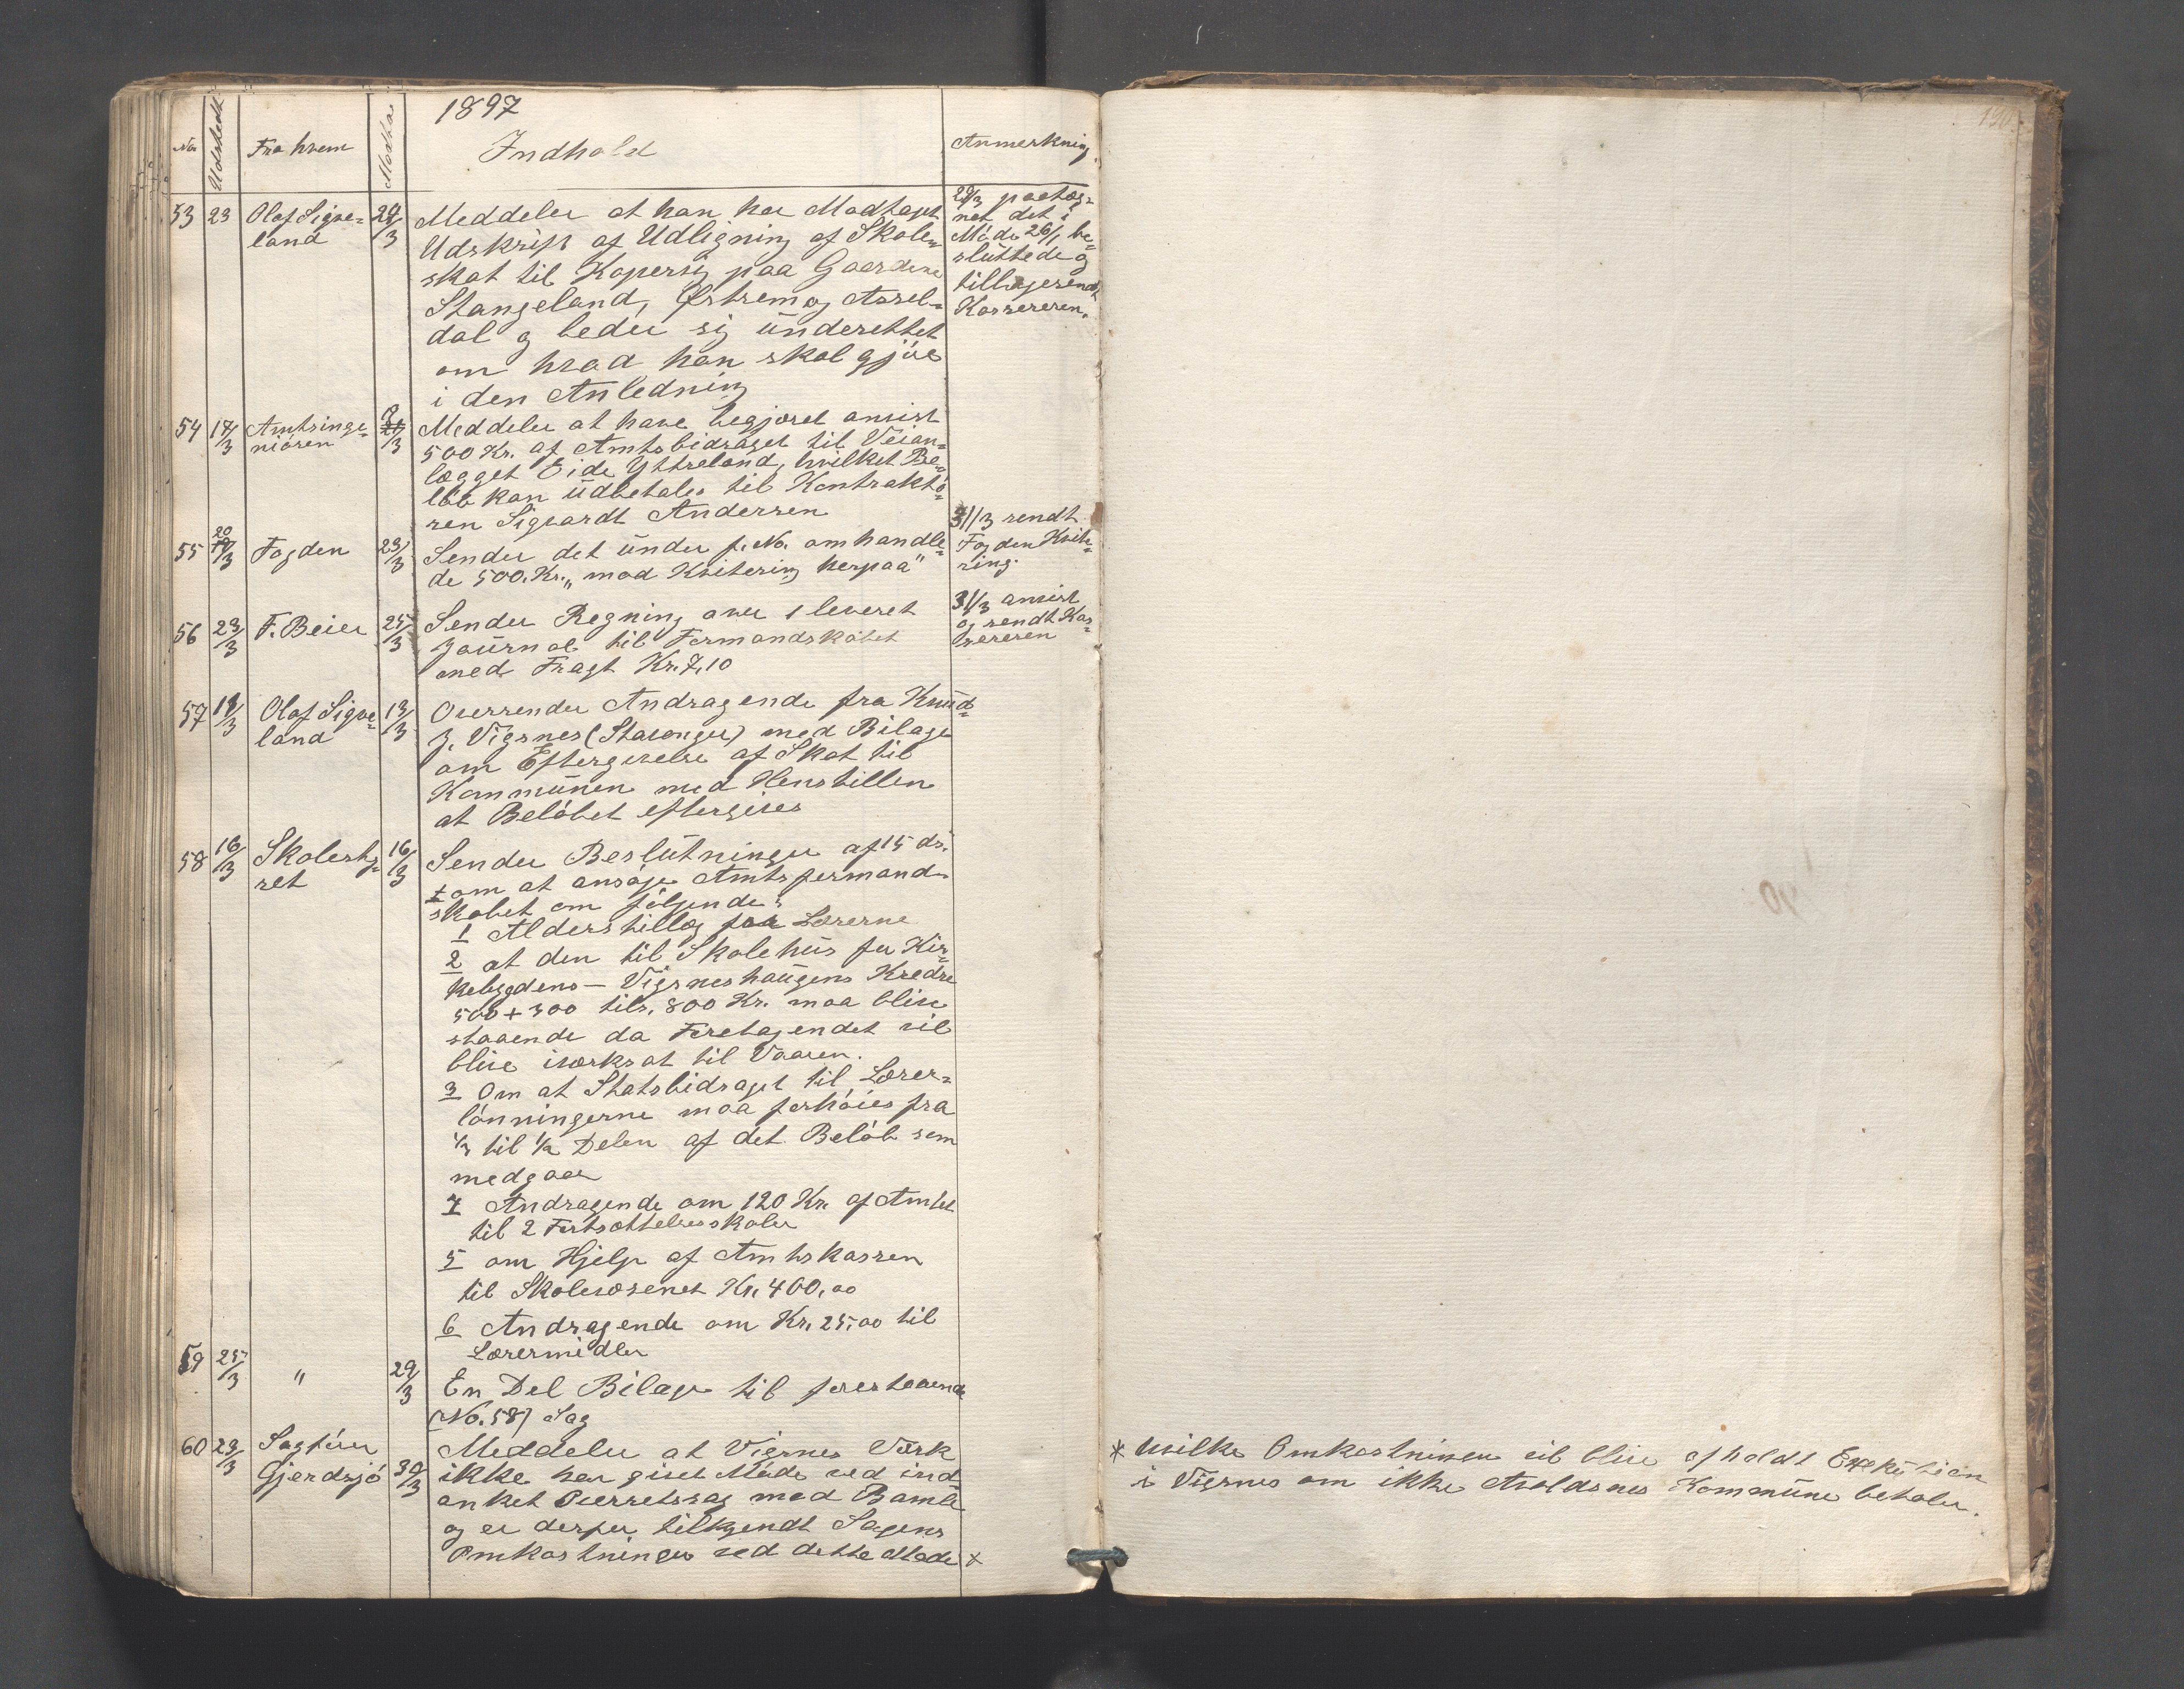 1897
No Udstedt Fra hvem Modtat Indhold Anmerkning
53 23 Olaf Sigve= 29/3 Meddeler at han har Modtaget 29/3 paateg=
land Udskrift af Udligning af Skole= net det i
skat til Kopervig paa Gaardene Møde 26/1 be=
Stangeland, Østrem og Aasel= sluttede og
dal og beder sig underrettet tilbagesendt
om hvad han skal gjøre Kassereren.
i den Anledning
54 17/3 Amtsinge= /3 Meddeler at have begjæret anvist
niøren 500 Kr. af Amtsbidraget til Veian=
lægget Eide Yttreland, hvilket Be=
løb kan udbetales til Kontraktø=
ren Sigvardt Andersen
55 20/3 Fogden 23/3 Sender det under f. No. omhandle= 31/3 sendt
de 500. Kr. „mod Kvitering herpaa" Fogden Kvite=
ring.
56 23/3 F. Beier 25/3 Sender Regning over 1 leveret 31/3 anvist
Journal til Formandskabet og sendt Kas=
med Fragt Kr. 7,10 sereren
57 11/3 Olaf Sigve= 13/3 Oversender Andragende fra Knud=
land J. Vigsnes (Stavanger) med Bilage
om Eftergivelse af Skat til
Kommunen med Henstillen
at Beløbet eftergives
58 16/3 Skolesty= 16/3 Sender Beslutninger af 15 ds.
ret om at ansøge Amtsformand=
skabet om følgende:
1 Alderstillæg for Lærerne
2 at den til Skolehus for Kir=
kebygdens — Vigsneshaugens Kredse
500 + 300 tils. 800 Kr. maa blive
staaende da Foretagendet vil
blive iværksat til Vaaren.
3 Om at Statsbidraget til Lærer=
lønningerne maa forhøies fra
1/3 til 1/2 Delen af det Beløb som
medgaar
4 Andragende om 120 Kr. af Amtet
til 2 Fortsættelsesskoler
5 om Hjelp af Amtskassen
til Skolevæsenet Kr. 400,00
6 Andragende om Kr. 25,00 til
Lærermidler
59 25/3 " 29/3 En Del Bilage til forestaaende
(No. 58) Sag
60 23/3 Sagfører Meddeler at Vigsnes Værk
Gjerdsjø 30/3 ikke har givet Møde ved ind
anket Overretssag mod Bamle
og er derfor tilkjendt Sagens
Omkostninger ved dette Møde x
* hvilke Omkostninger vil blive afholdt Exekution
i Vigsnes om ikke Avaldsnes Kommune betaler.
130